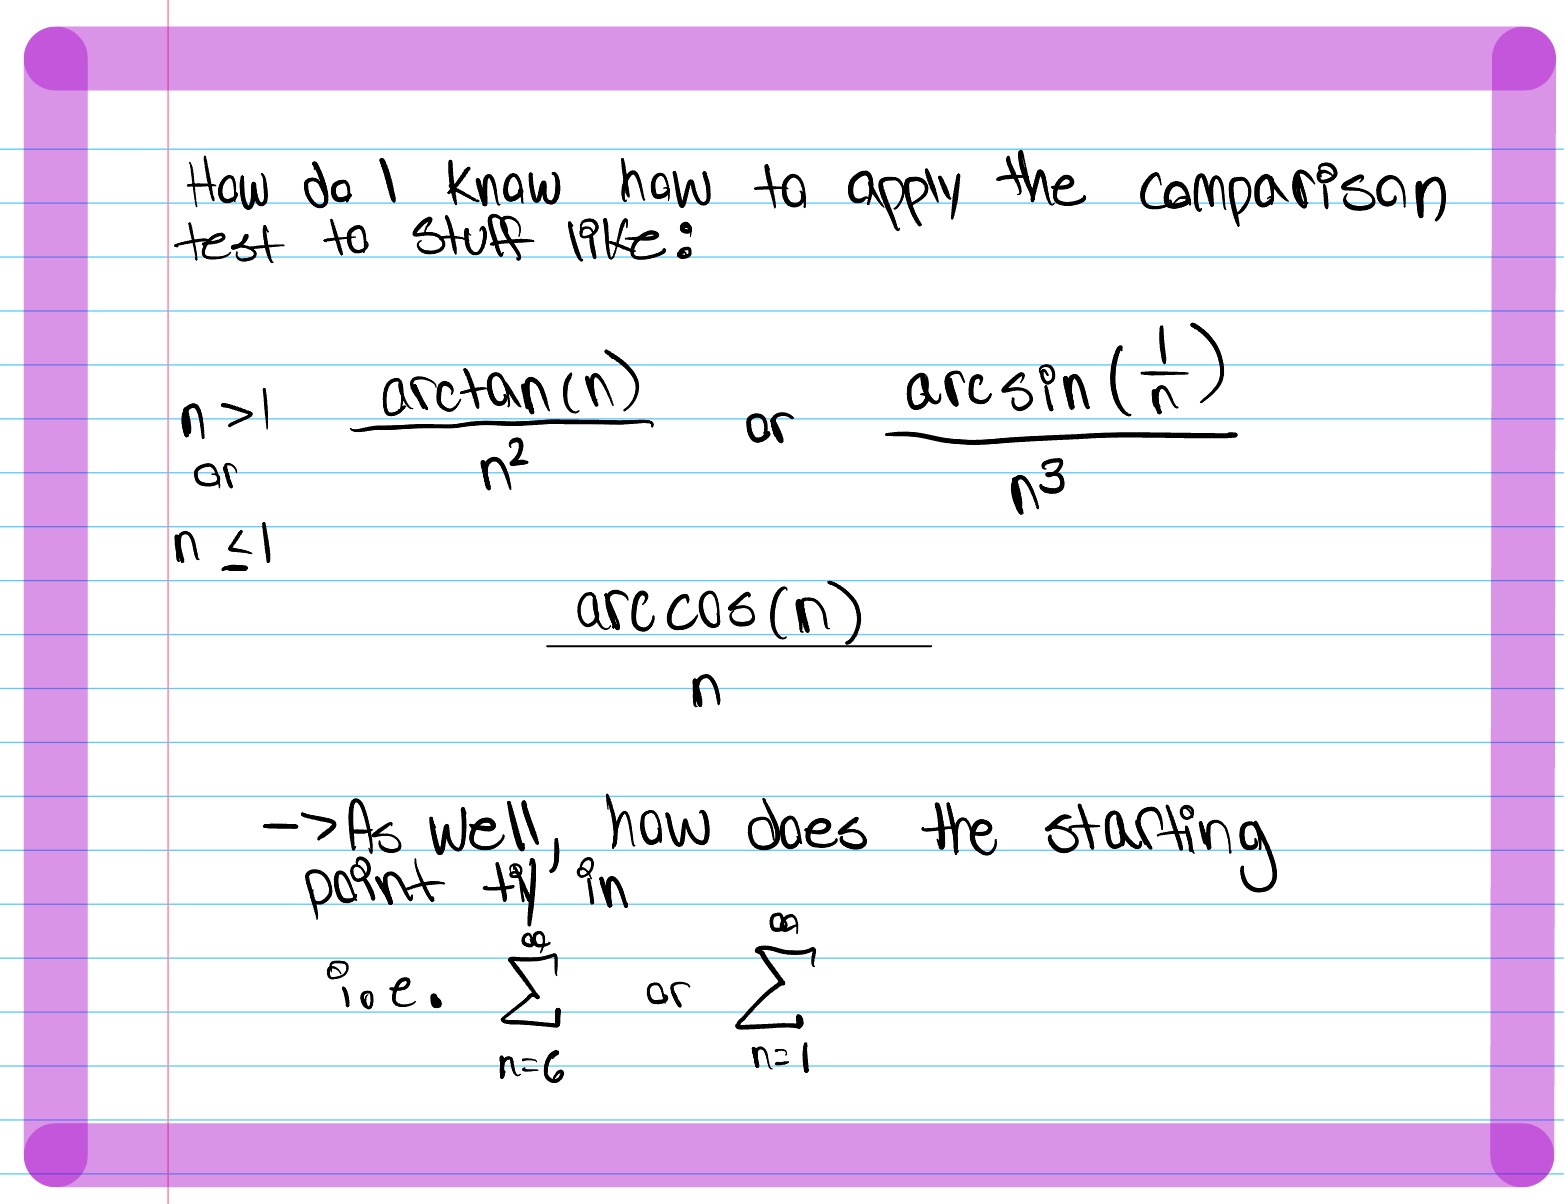 How do I know how to apply the comparison
test to stuff like:
n > 1 or n ≤ 1
arctan(n) / n² or arcsin(1/n) / n³
arccos(n) / n
-> As well, how does the starting
point in
i.e. ∞ Σ n=6 or ∞ Σ n=1